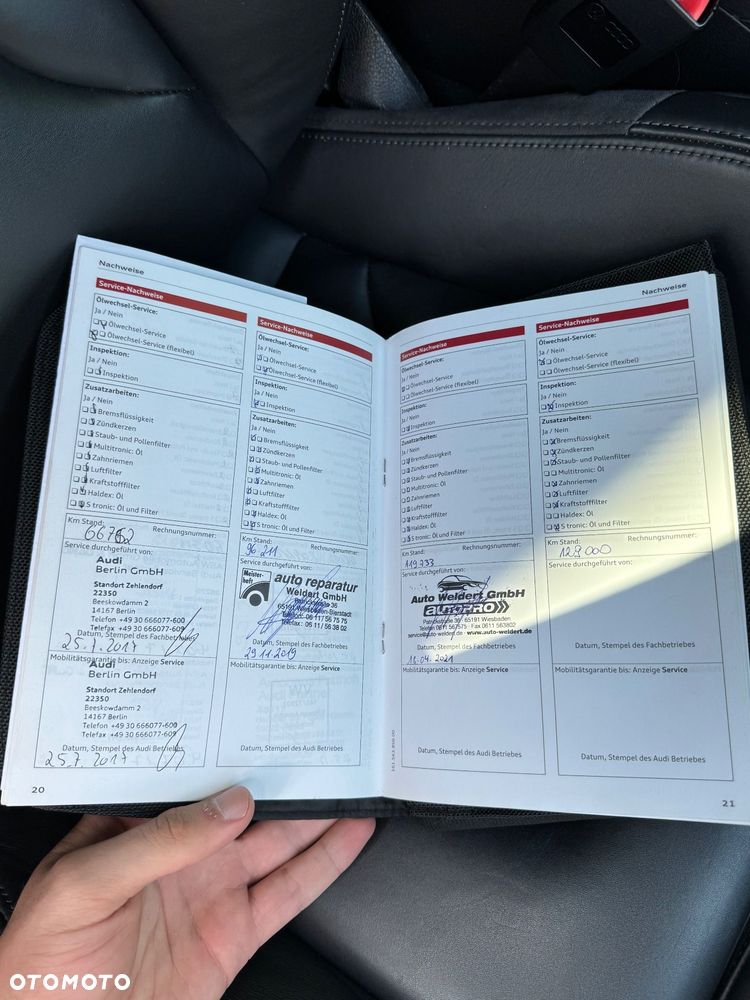 Nachweise
Service-Nachweise
Ölwechsel-Service:
Ja / Nein
Ölwechsel-Service
Ölwechsel-Service (flexibel)
Inspektion:
Ja / Nein
Inspektion
Zusatzarbeiten:
Ja / Nein
Bremsflüssigkeit
Zündkerzen
Staub- und Pollenfilter
Multitronic: Öl
Zahnriemen
Luftfilter
Kraftstofffilter
Haldex: Öl
S tronic: Öl und Filter
Km Stand: Rechnungsnummer:
Service durchgeführt von:
Audi
Berlin GmbH
Standort Zehlendorf
22350
Beeskowdamm 2
14167 Berlin
Telefon +49 30 666077-600
Telefax +49 30 666077-609
Datum, Stempel des Fachbetriebes
25.7.2017
Mobilitätsgarantie bis: Anzeige Service
Audi
Berlin GmbH
Standort Zehlendorf
22350
Beeskowdamm 2
14167 Berlin
Telefon +49 30 666077-600
Telefax +49 30 666077-609
Datum, Stempel des Audi Betriebes
25.7.2017
20
Service-Nachweise
Ölwechsel-Service:
Ja / Nein
Ölwechsel-Service
Ölwechsel-Service (flexibel)
Inspektion:
Ja / Nein
Inspektion
Zusatzarbeiten:
Ja / Nein
Bremsflüssigkeit
Zündkerzen
Staub- und Pollenfilter
Multitronic: Öl
Zahnriemen
Luftfilter
Kraftstofffilter
Haldex: Öl
S tronic: Öl und Filter
Km Stand: Rechnungsnummer:
96 211
Service durchgeführt von:
Meister-
haft
auto reparatur
Weldert GmbH
Patrickstraße 36
65191 Wiesbaden-Bierstadt
Telefon: 06 11/ 56 75 75
Telefax: 06 11/ 56 38 02
Datum, Stempel des Fachbetriebes
29.11.2019
Mobilitätsgarantie bis: Anzeige Service
Datum, Stempel des Audi Betriebes
Nachweise
Service-Nachweise
Ölwechsel-Service:
Ja / Nein
Ölwechsel-Service
Ölwechsel-Service (flexibel)
Inspektion:
Ja / Nein
Inspektion
Zusatzarbeiten:
Ja / Nein
Bremsflüssigkeit
Zündkerzen
Staub- und Pollenfilter
Multitronic: Öl
Zahnriemen
Luftfilter
Kraftstofffilter
Haldex: Öl
S tronic: Öl und Filter
Km Stand: Rechnungsnummer:
119 233
Service durchgeführt von:
Auto Weldert GmbH
AUTOPRO
Patrickstraße 36 · 65191 Wiesbaden
Telefon 0611 567575 · Fax 0611 563802
service@auto-weldert.de · www.auto-weldert.de
Datum, Stempel des Fachbetriebes
Mobilitätsgarantie bis: Anzeige Service
Datum, Stempel des Audi Betriebes
Service-Nachweise
Ölwechsel-Service:
Ja / Nein
Ölwechsel-Service
Ölwechsel-Service (flexibel)
Inspektion:
Ja / Nein
Inspektion
Zusatzarbeiten:
Ja / Nein
Bremsflüssigkeit
Zündkerzen
Staub- und Pollenfilter
Multitronic: Öl
Zahnriemen
Luftfilter
Kraftstofffilter
Haldex: Öl
S tronic: Öl und Filter
Km Stand: Rechnungsnummer:
Service durchgeführt von:
Datum, Stempel des Fachbetriebes
Mobilitätsgarantie bis: Anzeige Service
Datum, Stempel des Audi Betriebes
21
OTOMOTO